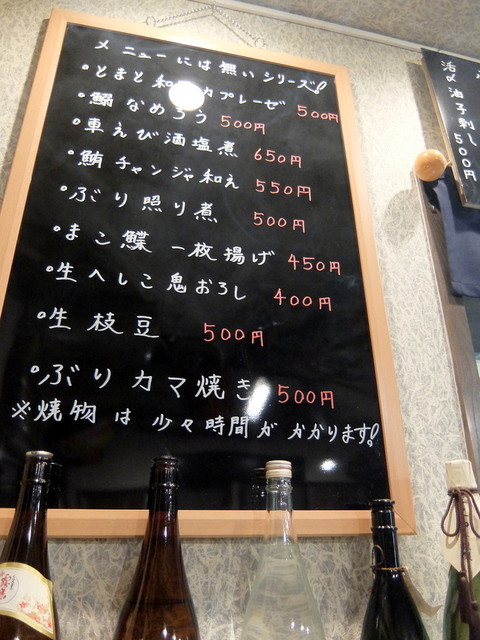 メニューには無いシリーズ!
・とまと和 カプレーゼ 500円
・鰯なめろう 500円
・車えび酒塩煮 650円
・鮪チャンジャ和え 550円
・ぶり照り煮 500円
・まこ鰈一枚揚げ 450円
・生へしこ鬼おろし 400円
・生枝豆 500円
・ぶりカマ焼き 500円
※焼物は少々時間がかかります!
活〆油子刺し500円